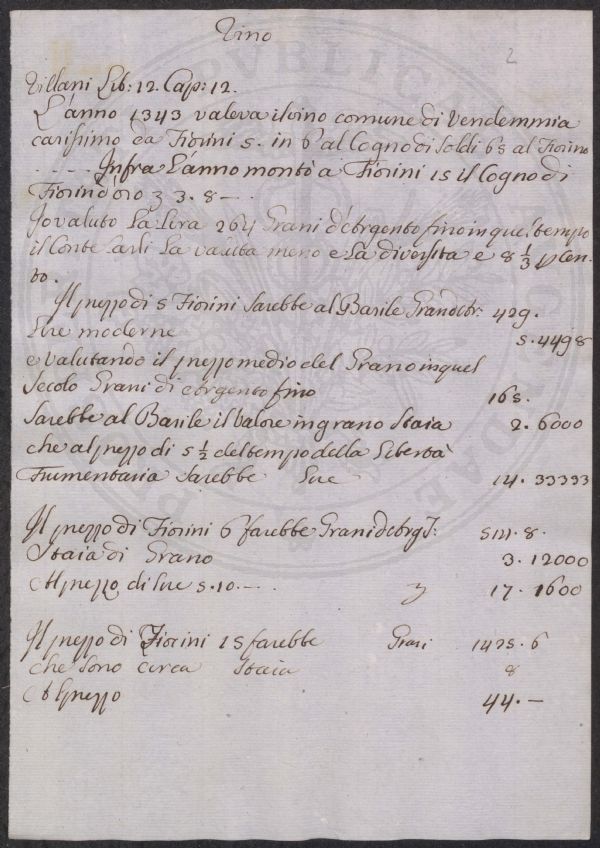 Vino
2
Villani Lib: 12. Cap: 12.
L'anno 1343 valeva il vino comune di Vendemmia
carissimo da Fiorini 5. in 6 al Cogno di Soldi 65 al Fiorino
Infra L'anno montò a Fiorini 15 il Cogno di
Fiorin d'oro 3 3. 8 —.
Io valuto La Lira 264 Grani d'Argento fino in quel tempo
il Conte Carli La valuta meno e La diversita e 8 1/3 p Cen-
to.
Il prezzo di 5 Fiorini Sarebbe al Barile Grani d'Ar: 429.
Lire moderne 5. 4498
e valutando il prezzo medio del Grano in quel
Secolo Grani di Argento fino 165.
Sarebbe al Barile il Valore in grano Staia 2. 6000
che al prezzo di 5 1/2 del tempo della Libertà
Frumentaria Sarebbe Lire 14. 33333
Il prezzo di Fiorini 6 sarebbe Grani d'Arg.t: 514. 8.
Staia di Grano 3. 12000
Al prezzo di Lire 5. 10. — 17. 1600
Il prezzo di Fiorini 15 sarebbe Grani 1425. 6
che sono circa Staia 8
Al prezzo 44. —